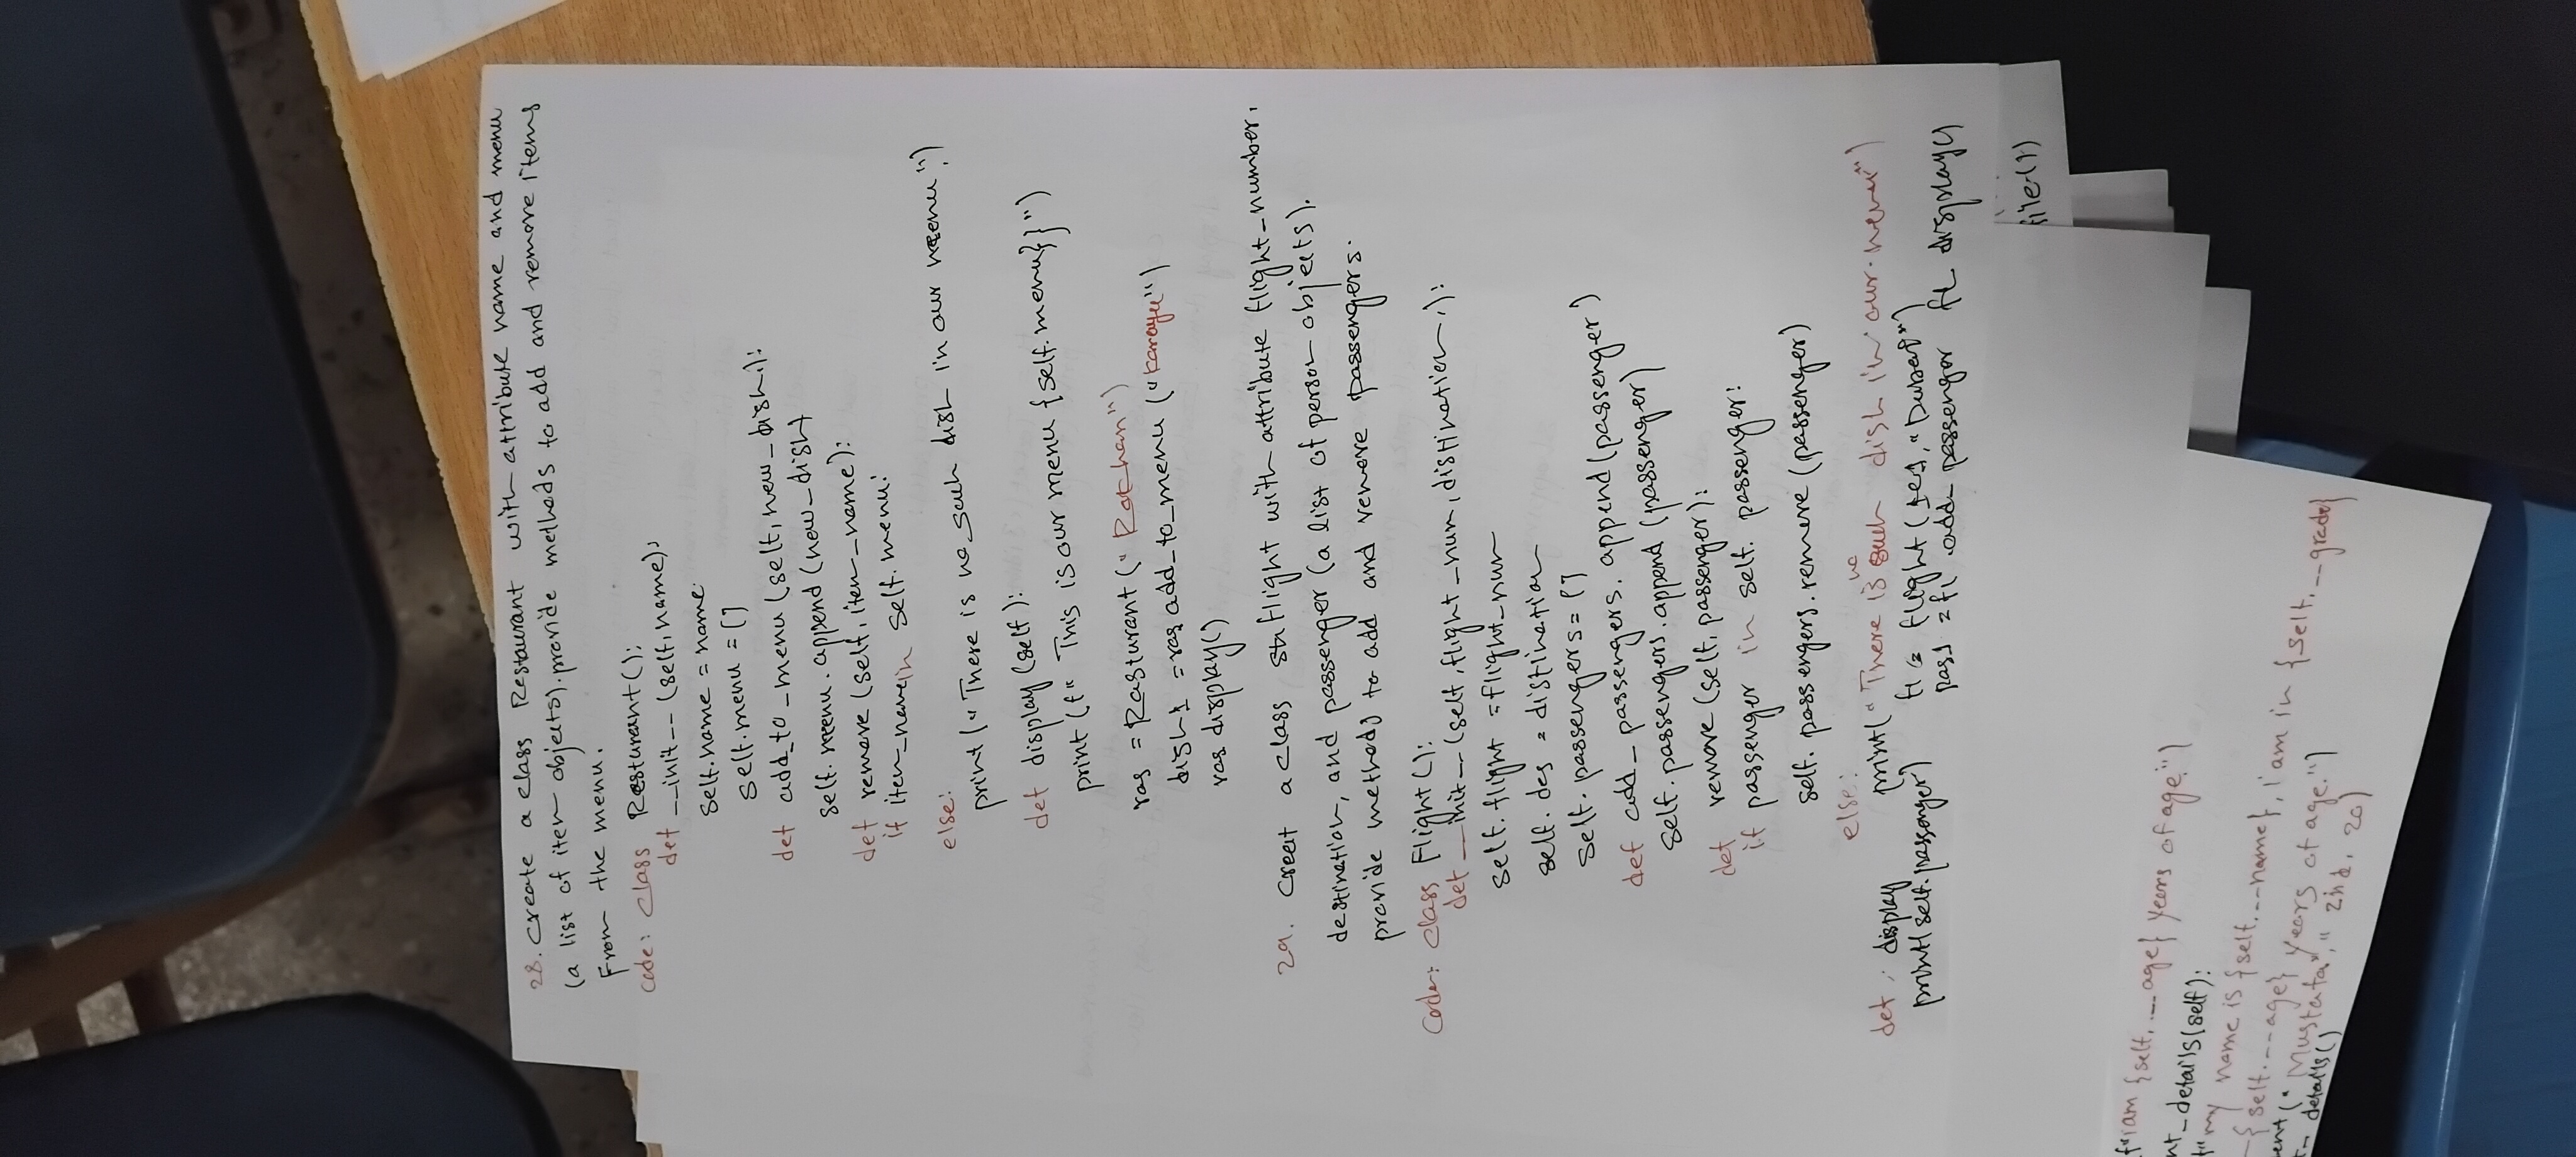 28. Create a class Restaurant with attribute name and menu
(a list of item objects). provide methods to add and remove items
From the menu.
Code: class Resturant():
def __init__ (self, name):
self.name = name
self.menu = []
def add_to_menu (self, new_dish,):
self.menu.append (new_dish)
def remove (self, item_name):
if item_name in self.menu:
else:
print ("There is no such dish in our menu.")
def display (self):
print (f" This is our menu {self.menu}}")
ras = Rasturant ("
dish1 = ras add_to_menu ("
ras display()
29. Creat a class flight with attribute flight_number,
destination, and passenger (a list of person objects).
provide methods to add and remove passengers.
Code: class Flight():
def __init__ (self, flight_num, distination,):
self.flight = flight_num
self.des = distination
self.passengers = []
def add_passengers.append(passenger)
self.passengers.append (passenger)
def remove (self, passenger):
if passenger in self.passenger:
self.passengers.remove (passenger)
else:
print("There is no such dish in our
def display
print(self.passenger)
fl = flight (
pas1 = fl .add_passenger fl display()
file(1)
f"iam {self.__age} years of age.")
nt_details(self):
f"my name is {self.__name}, i am in {self.__grade}
{self.__age} years of age.")
ent ("Mustafa", " 2nd, 20)
t_details()